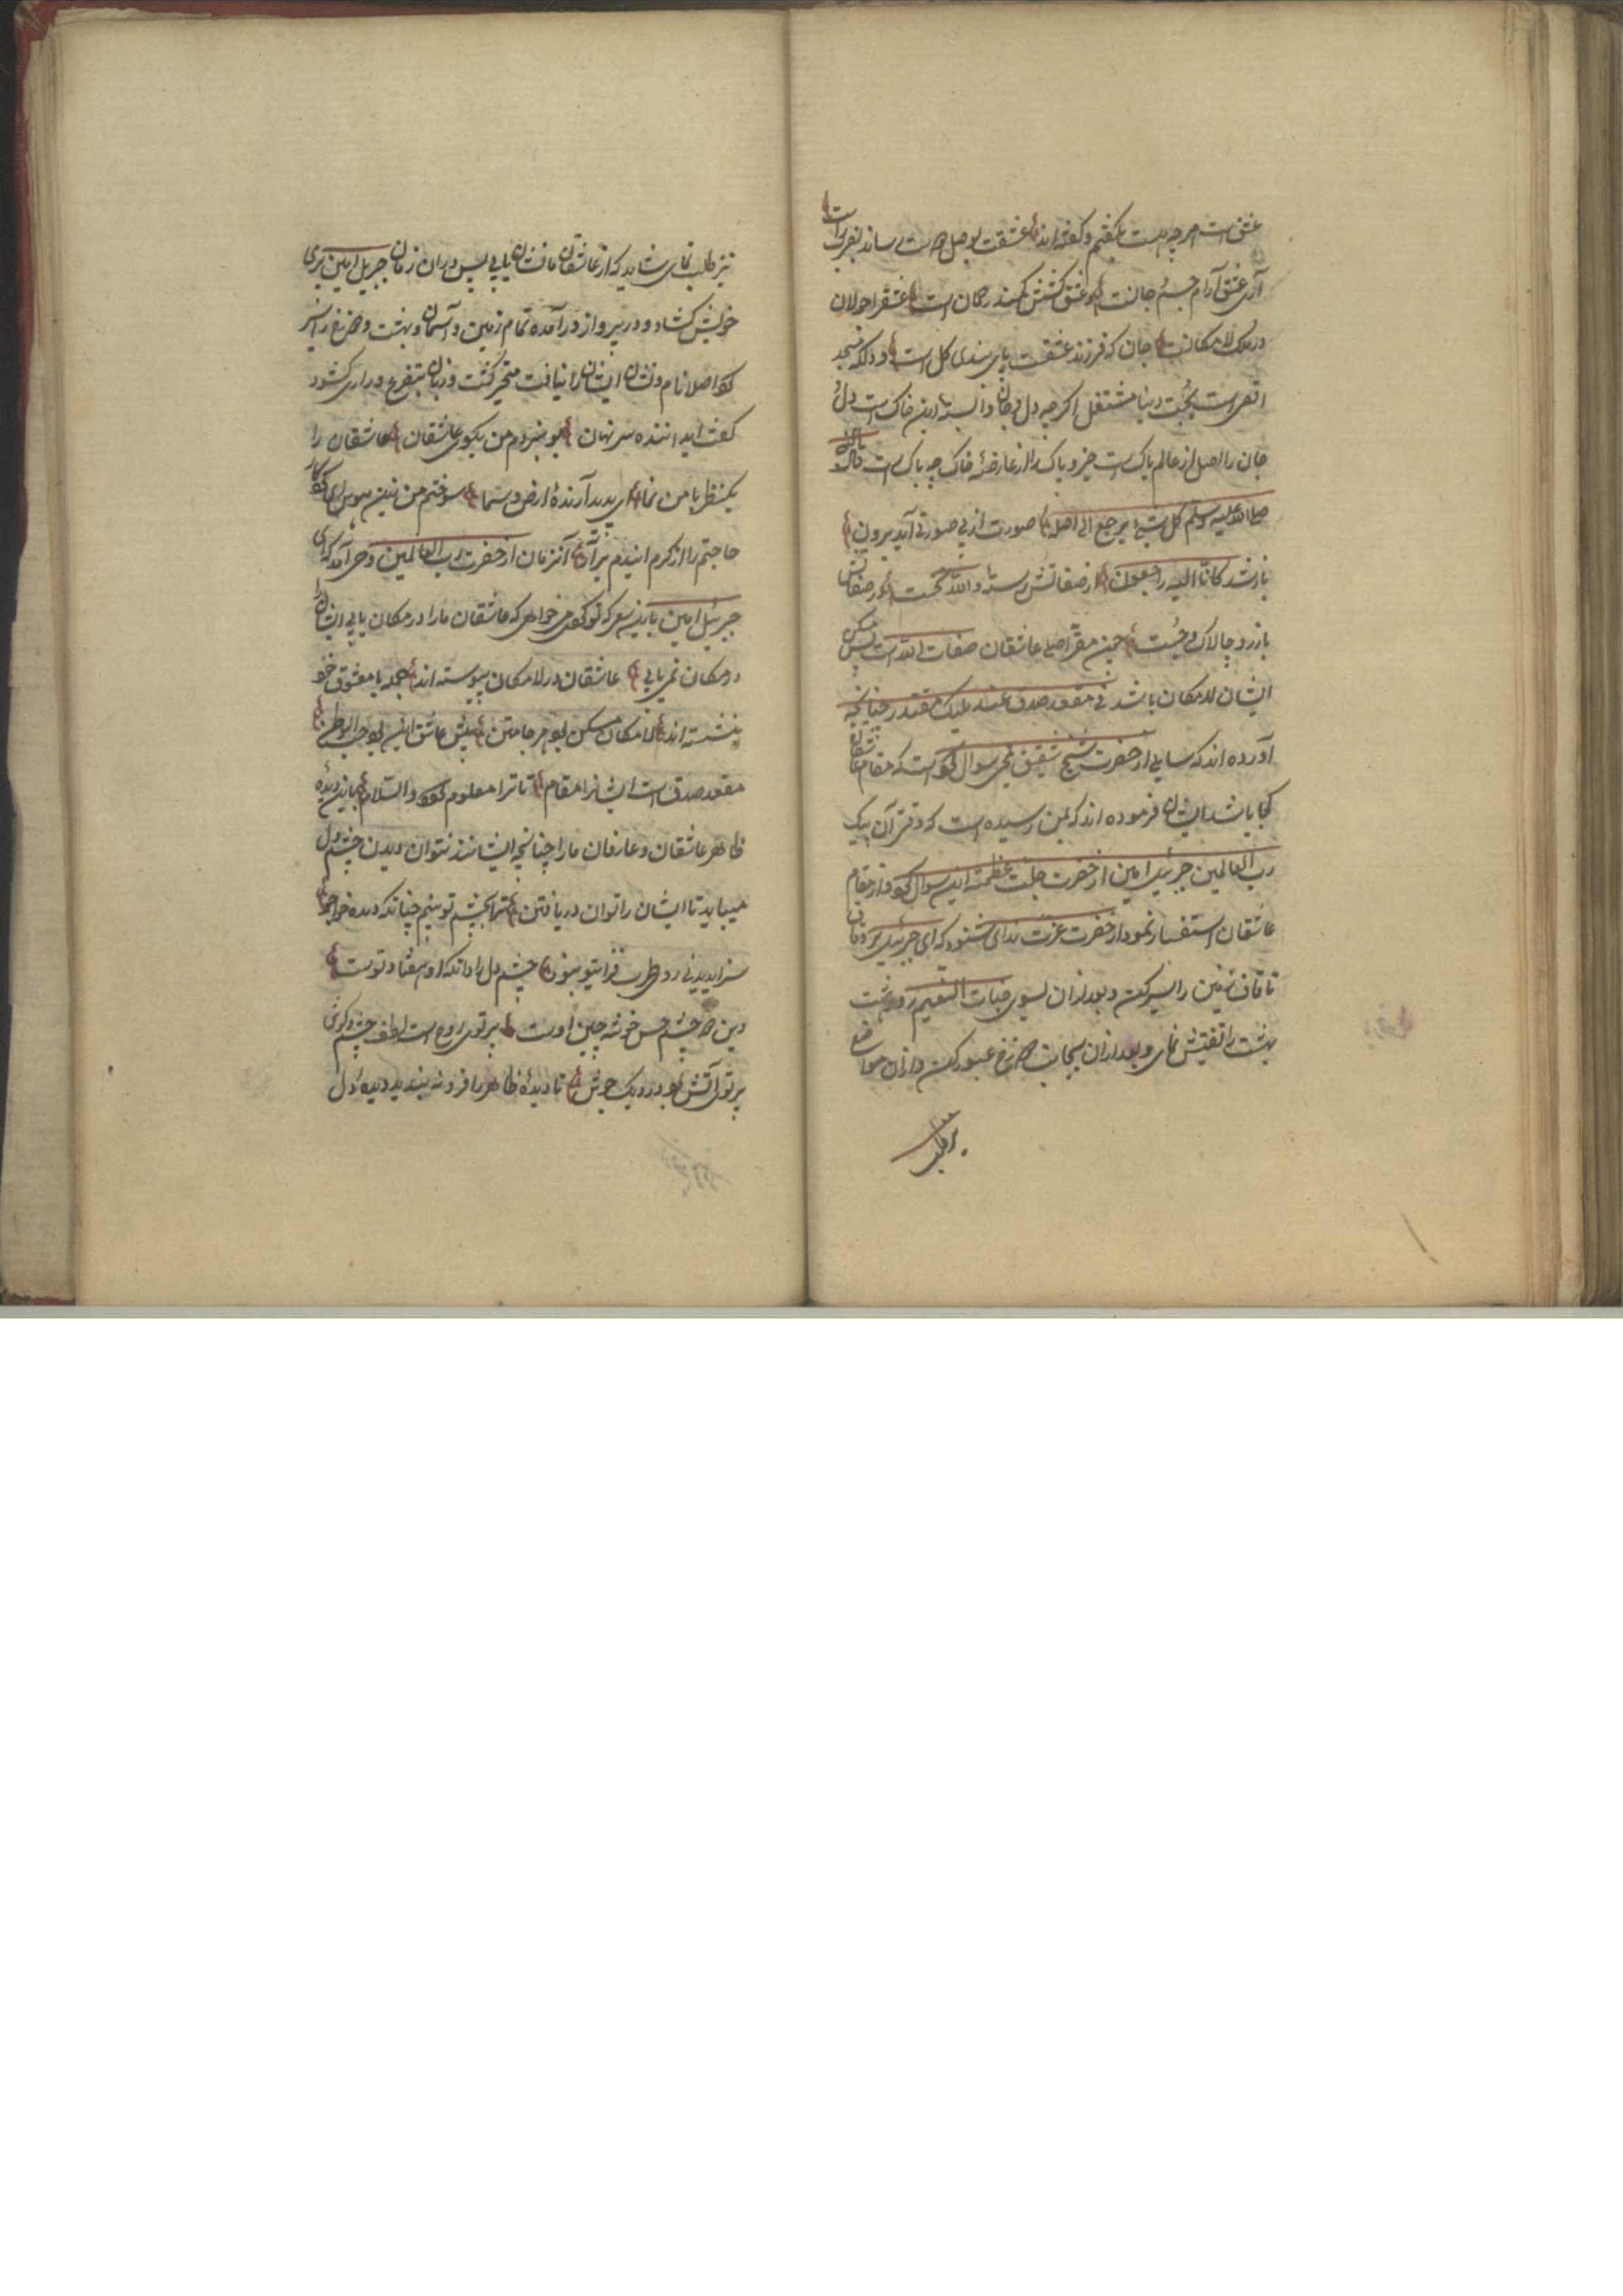 عشق است هرچه هست بگفتیم و گفته اند عشقت بوصل دوست رساند بضرب راست
آری عشق آرام جسم جانست و عشق کشش کمند رحمان است عشق را جولان
در ملک لامکانست جان که فرزند عشقست پای بندی کل است و دلکه
است بمحبت دنیا مشتغل اگرچه دل و جان وابسته این خاک است دل
جان را اصل از عالم پاک است جز و پاک را از عارضهٔ خاک چه باک است قال
صلی الله علیه وسلم کل شیء یرجع الی اصله صورت از بی صورتی آید برون
باز شد کانا الیه راجعون از صفاتش رسته و الله نخست در صفاتش
باز رو چالاک و چست چون مقر اصلی عاشقان صفات الله است پس مسکن
ایشان لامکان باشد فی مقعد صدق عند ملیک مقتدر چنانچه
آورده اند که سایلی از حضرت شیخ شقیق بلخی سوال کرده است که مقام عاشقان
کجا باشد ایشان فرموده اند که بمن رسیده است که وقتی آن پیک
رب العالمین جبرئیل امین از حضرت جلت عظمته این سوال کرد و از مقام
عاشقان استفسار نمود از حضرت عزت ندای شنود که ای جبرئیل برو قاف
تا قاف زمین را سیر کن و بعد ازان بسوی جنات النعیم رو هشت
بهشت را تفتیش نمای و بعد ازان بجانب دوزخ عبور کن و ازان مواضع
نیز طلب
نیز طلب نمای شاید که از عاشقان ما نشان یابی پس دران زمان جبریل امین پری
خویش کشاد و در پرواز درآمده تمام زمین و آسمان و بهشت و دوزخ را سیر
کرد اصلا نام و نشان ایشان را نیافت متحیر گشت و زبان بتضرع و زاری کشود
گفت ای داننده سر نهان بو نبردم من بکوی عاشقان عاشقان را
یکنظر با من نما ای پدید آرندهٔ ارض و سما سوختم من زین هوس ای کردگار
حاجتم را از کرم ایندم برآر آنزمان از حضرت رب العالمین وحی آمد که ای
جبرئیل امین باز پس که تو می خواهی که عاشقان ما را در مکان یابی ایشان را
در مکان نمی یابی عاشقان در لامکان پیوسته اند جمله با معشوق خود
بنشسته اند لامکان مسکن بود مر جا متین پیش عاشق این بود حب الوطن
مقعد صدق است ایشانرا مقام تا ترا معلوم کردد والسلام باین دیدهٔ
ظاهر عاشقان و عارفان ما را چنانچه ایشانند نتوان دیدن چشم دل
میباید تا ایشان را توان دریافتن ترا بچشم تو بینم چنانکه دیده خواهم
سزا بدیدنی رو چشم دل را دانکه او هفتاد توست
دین دو چشم حس خوشه چین اوست پرتوی روح است لطف چشم و گوش
پرتوی آتش بود در دیک جوش تا دیدهٔ ظاهر را فرو نه بندید دیدهٔ دل